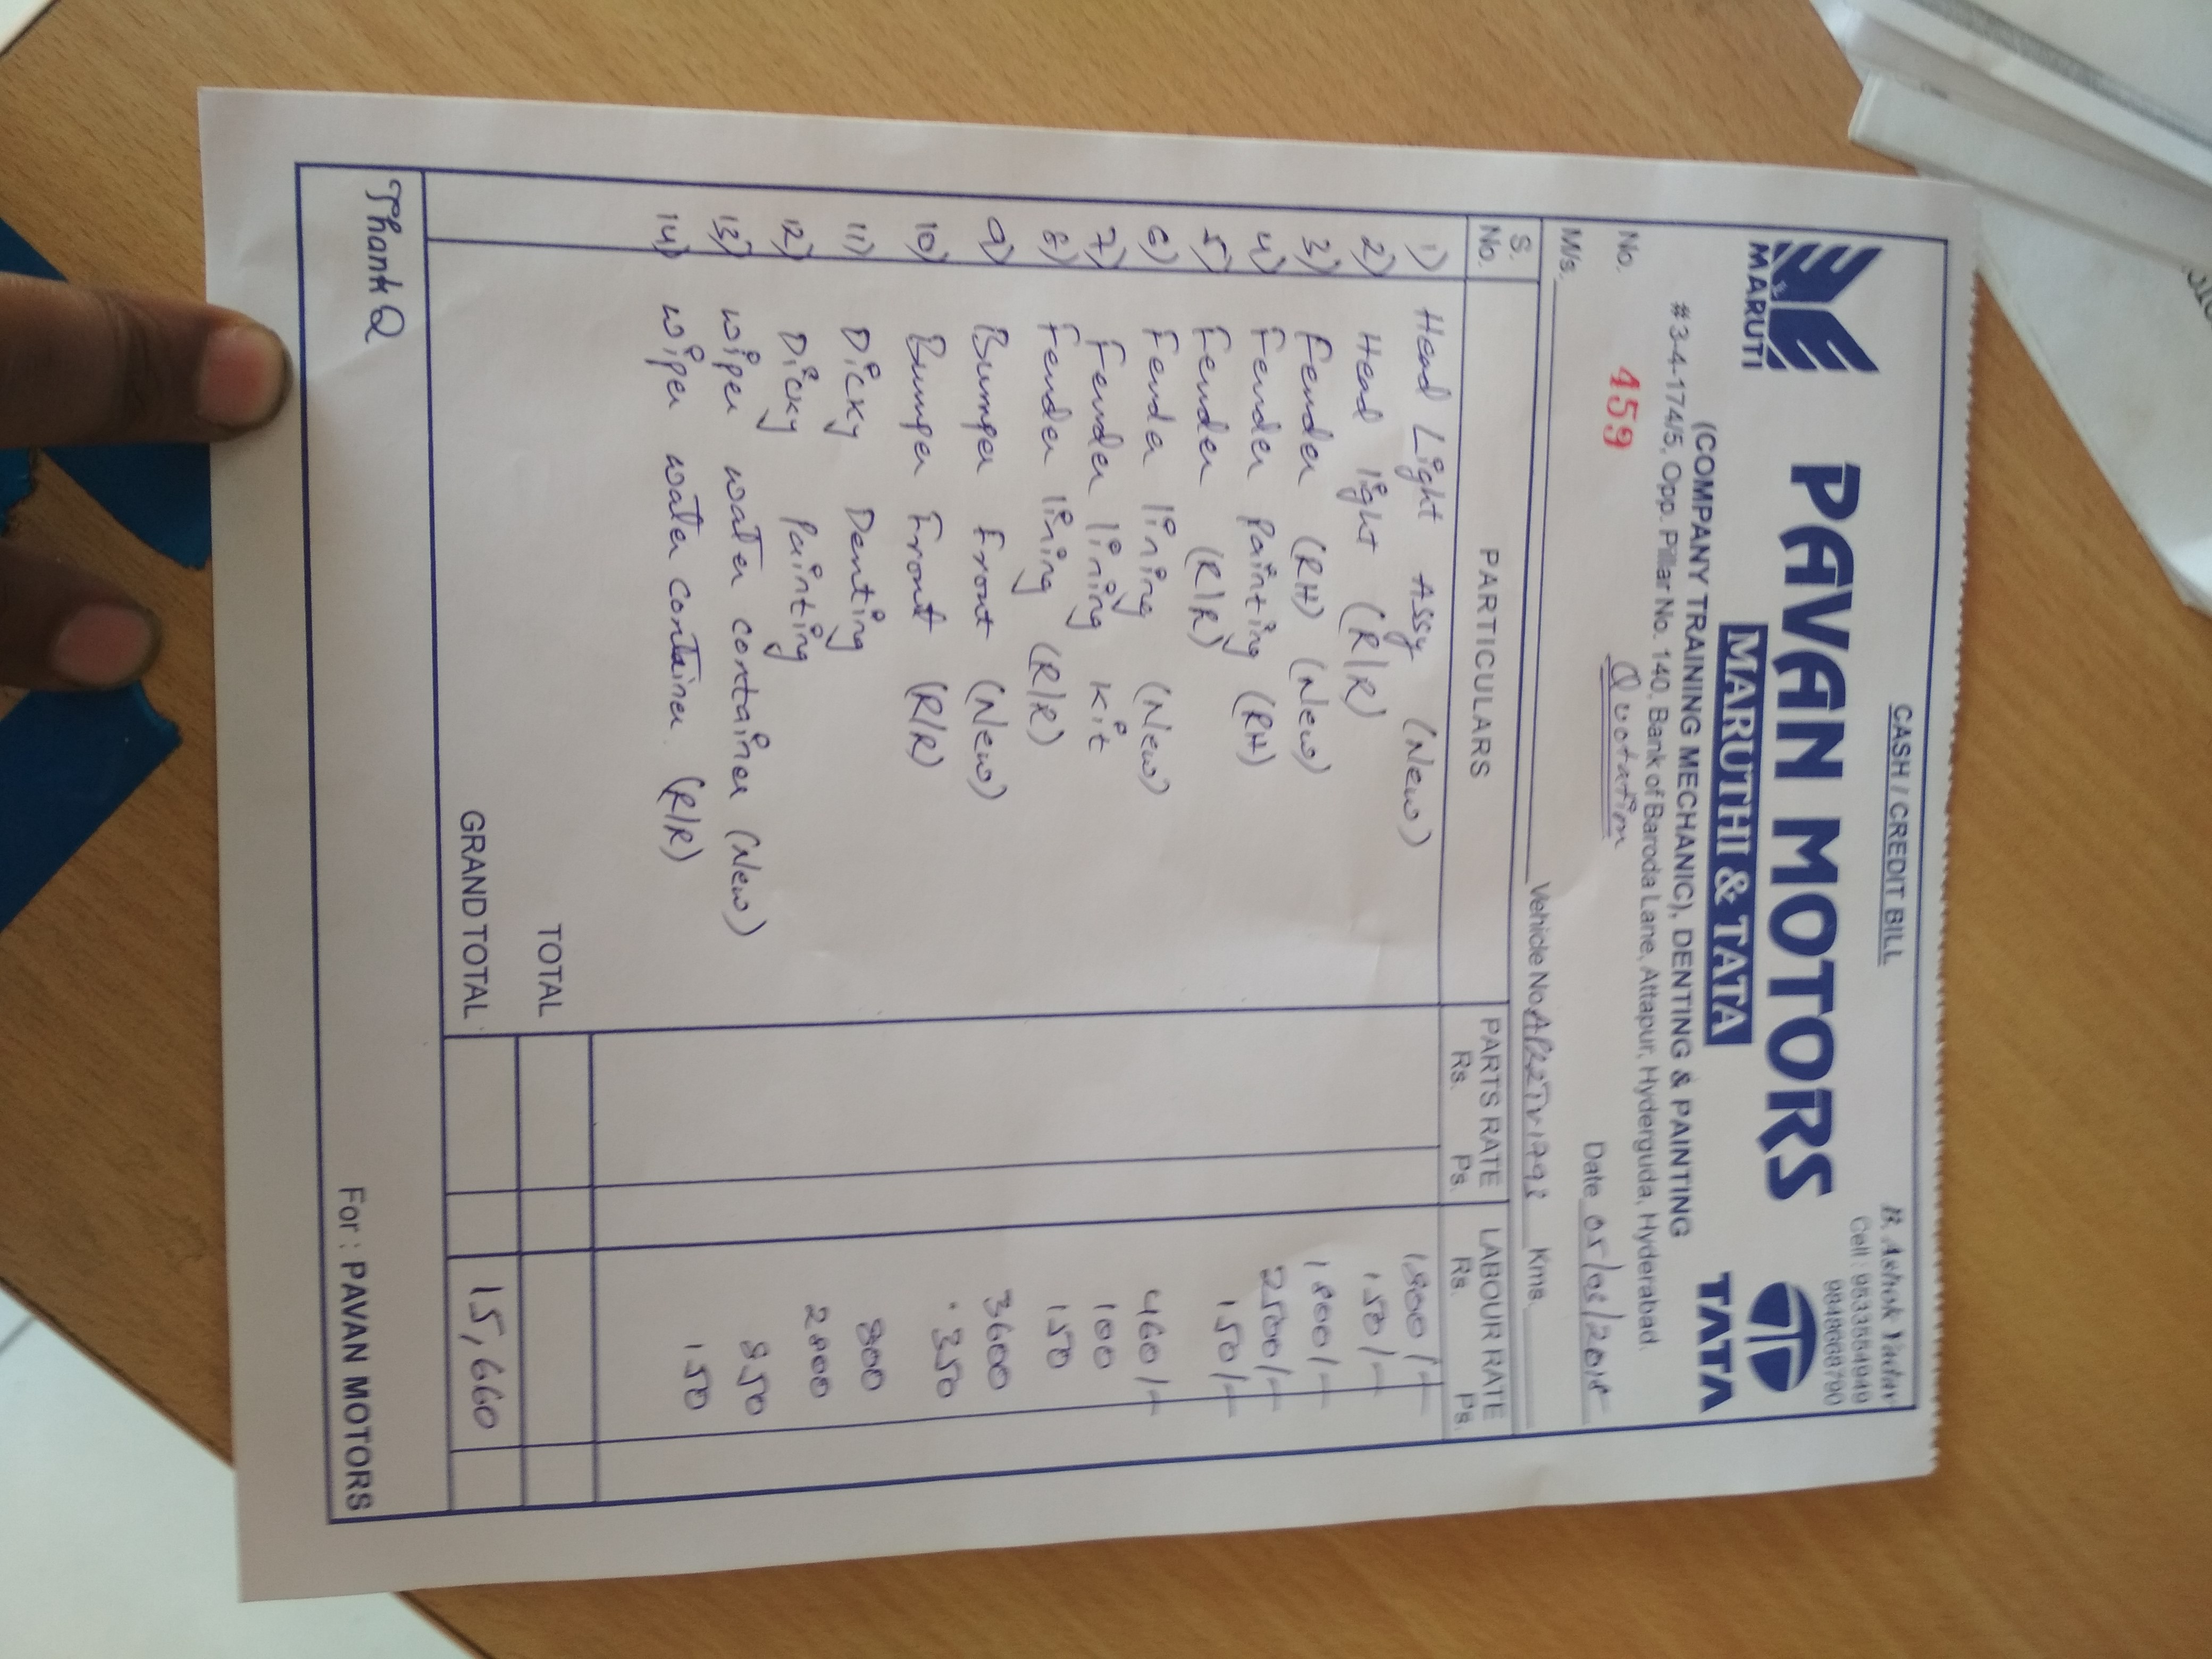 CASH / CREDIT BILL
B. Ashok Yadav
MARUTI
PAVAN MOTORS
Cell :
MARUTHI & TATA
TATA
(COMPANY TRAINING MECHANIC), DENTING & PAINTING
#3-4-174/5, Opp. Pillar No. 140, Bank of Baroda Lane, Attapur, Hyderguda, Hyderabad.
No. 459 Quotation Date
M/s. Vehicle No. Kms.
S. No. PARTICULARS PARTS RATE Rs. Ps. LABOUR RATE Rs. Ps.
1) Head Light Assy (New) 1800/-
2) Head light (R/R) 150/-
3) Fender (RH) (New) 1800/-
4) Fender Painting (RH) 2500/-
5) Fender (R/R) 150/-
6) Fender lining (New) 460/-
7) Fender lining Kit 100
8) Fender lining (R/R) 150
9) Bumper Front (New) 3600
10) Bumper Front (R/R) 350
11) Dicky Denting 800
12) Dicky Painting 2800
13) wiper water container (New) 850
14) wiper water container (R/R) 150
TOTAL
GRAND TOTAL 15,660
Thank Q
For : PAVAN MOTORS